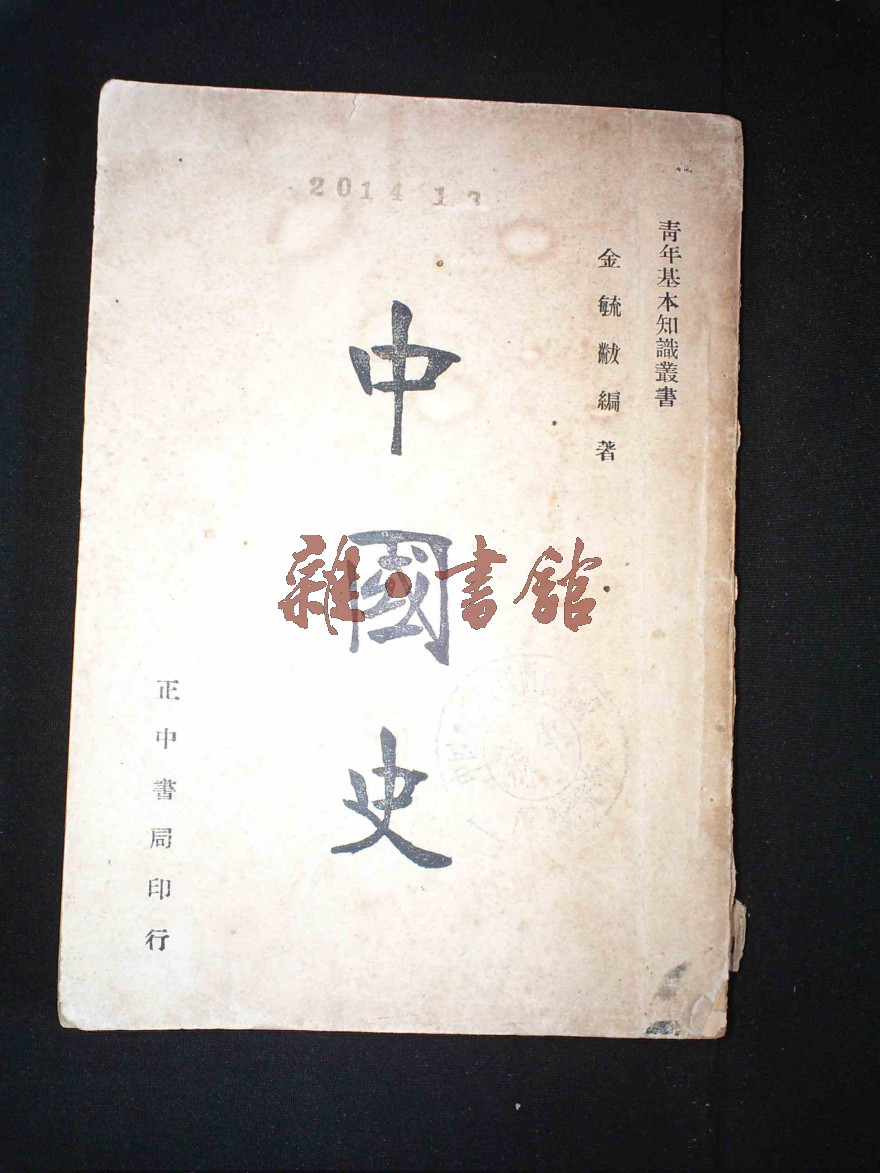 2014 1 3
青年基本知識叢書
金毓黻編著
中國史
正中書局印行
雜·書館